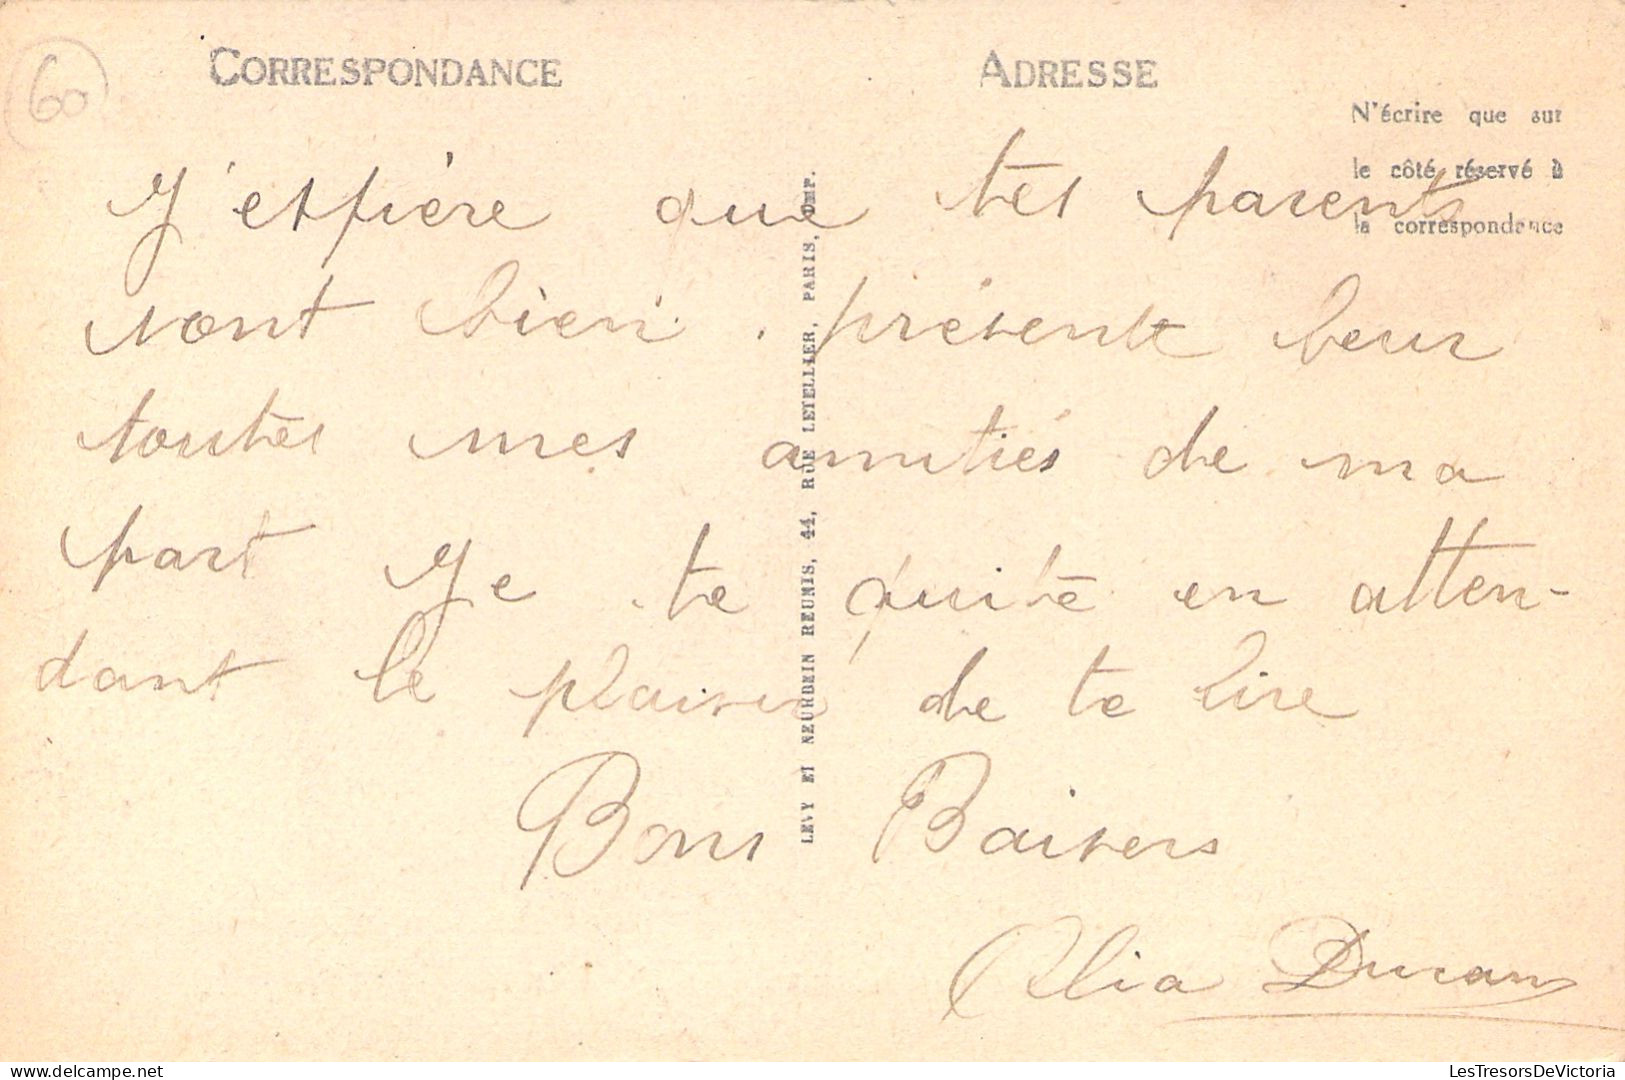 60
CORRESPONDANCE
ADRESSE
N'écrire que sur
le côté réservé à
la correspondance
J'espière que tes parents
sont bien. présente leur
toutes mes amitiés de ma
part Je te quite en atten-
dant le plaisir de te lire
Bons Baisers
Alia Duran
LEVY ET NEURDEIN REUNIS, 44, RUE LETELLIER, PARIS, IMP.
LesTresorsDeVictoria